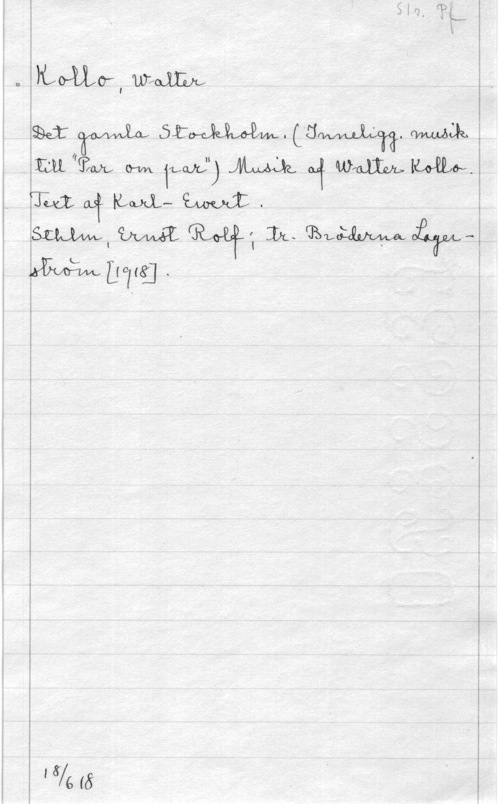 Slr. Pf
Kollo, Walter
Det gamla Stockholm. (Inneligg. musik
till "Par om par") Musik af Walter Kollo.
Text af Karl-Ewert.
Sthlm, Ernst Rolf; tr. Bröderna Lager-
ström [1918].
18/6 18